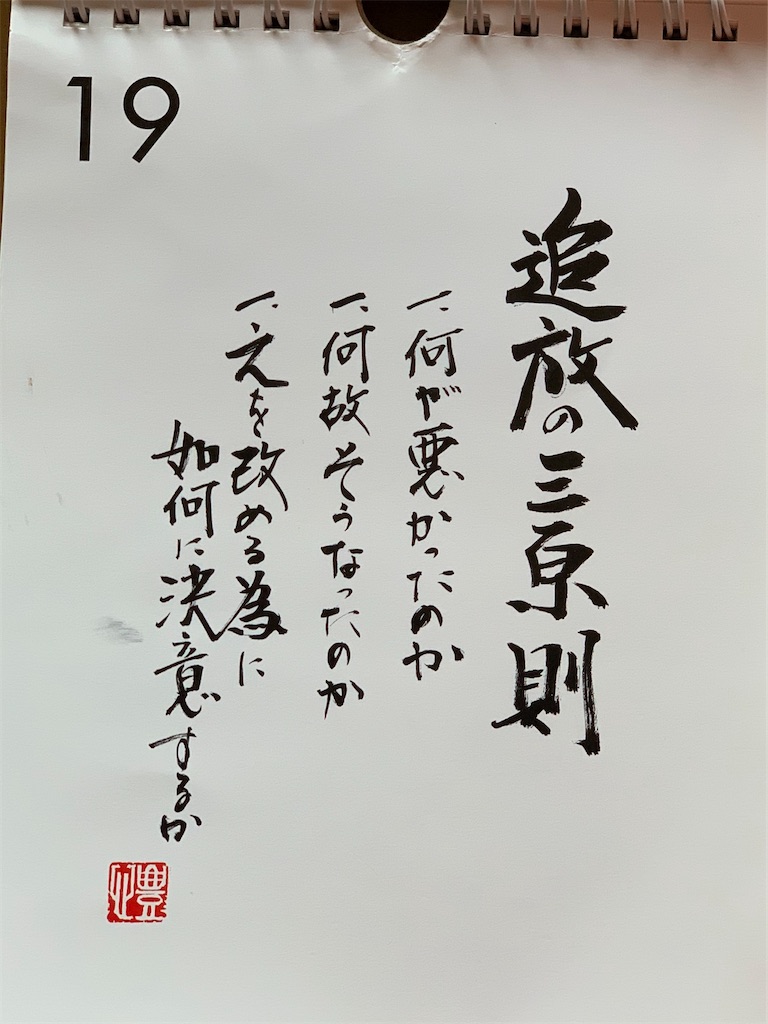 19
追放の三原則
一、何が悪かったのか
一、何故そうなったのか
一、之を改める為に
如何に決意するか